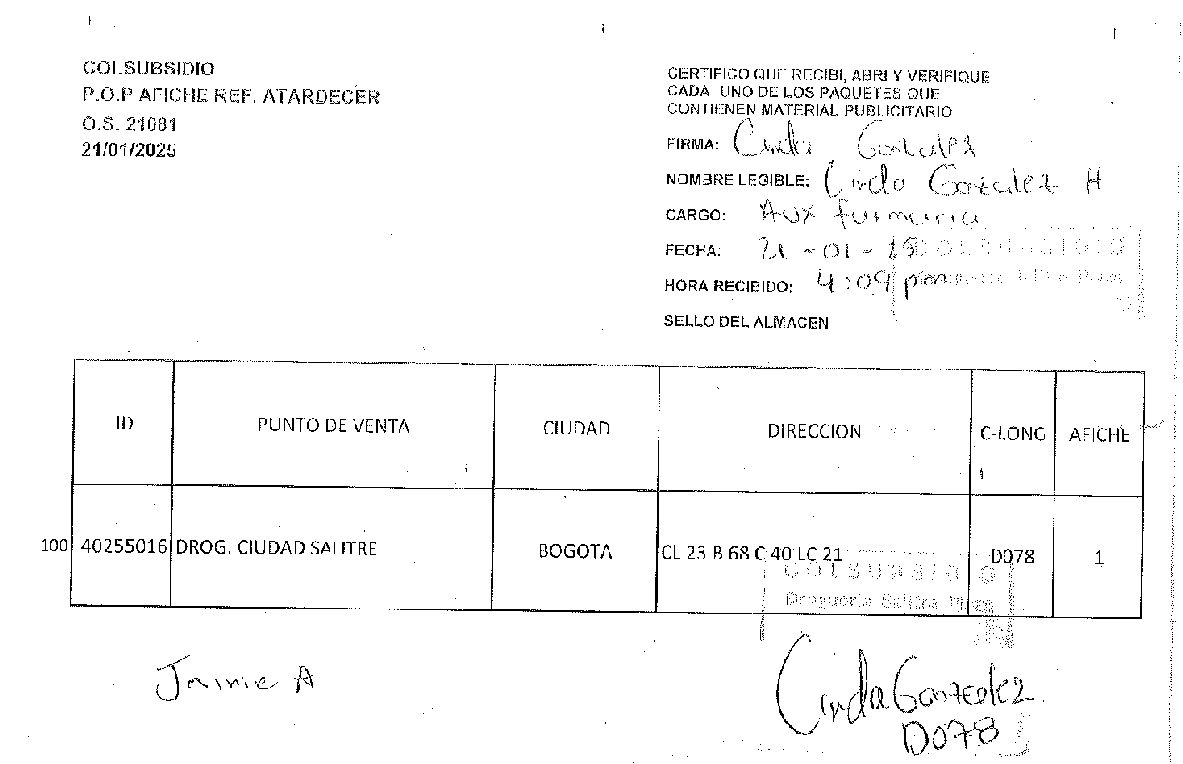 COLSUBSIDIO
P.O.P AFICHE REF. ATARDECER
O.S. 21081
21/01/2025
CERTIFICO QUE RECIBI, ABRI Y VERIFIQUE
CADA UNO DE LOS PAQUETES QUE
CONTIENEN MATERIAL PUBLICITARIO
FIRMA: Cinda Gonzalez
NOMBRE LEGIBLE: Cinda Gonzalez H
CARGO: Aux farmacia
FECHA: 21-01-25
HORA RECIBIDO: 4:09 pm
SELLO DEL ALMACEN
ID PUNTO DE VENTA CIUDAD DIRECCION C-LONG AFICHE
100 40255016 DROG. CIUDAD SALITRE BOGOTA CL 23 B 68 C 40 LC 21 D078 1
COLSUBSIDIO
Drogueria Salitre Plaza
Jaime A
Cinda Gonzalez
D078